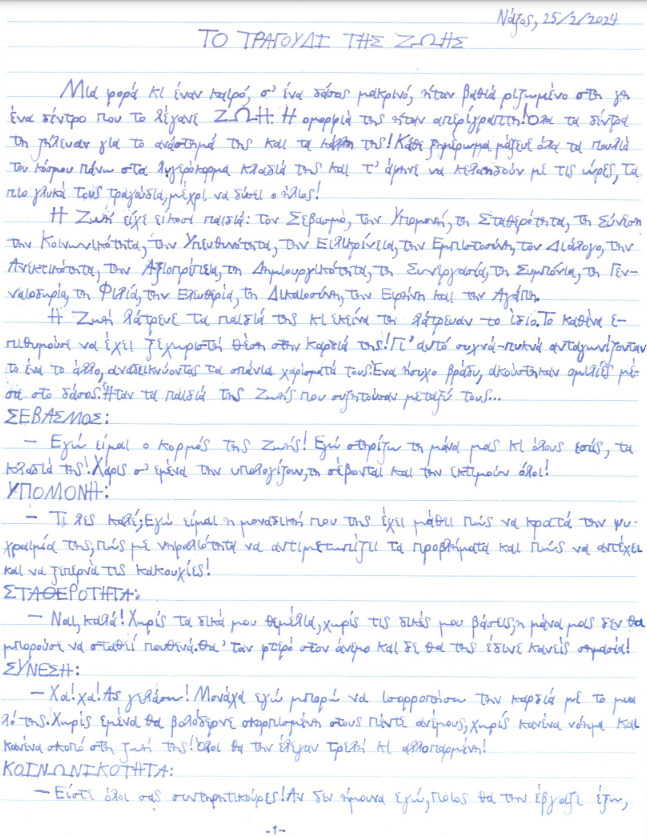 Νάξος, 25/2/2024
ΤΟ ΤΡΑΓΟΥΔΙ ΤΗΣ ΖΩΗΣ
Μια φορά κι έναν καιρό, σ' ένα δάσος μακρινό, ήταν βαθιά ριζωμένο στη γη
ένα δέντρο που το λέγανε ΖΩΗ. Η ομορφιά της ήταν απερίγραπτη! Όλα τα δέντρα
τη ζήλευαν για το ανάστημά της και τα κάλλη της! Κάθε ξημέρωμα μάζευε όλα τα πουλιά
του κόσμου πάνω στα λυγερόκορμα κλαδιά της και τ' άφηνε να κελαηδούν με τις ώρες, τα
πιο γλυκά τους τραγούδια, μέχρι να δύσει ο ήλιος!
Η Ζωή είχε είκοσι παιδιά: τον Σεβασμό, την Υπομονή, τη Σταθερότητα, τη Σύνεση
την Κοινωνικότητα, την Υπευθυνότητα, την Ειλικρίνεια, την Εμπιστοσύνη, τον Διάλογο, την
Ανεκτικότητα, την Αξιοπρέπεια, τη Δημιουργικότητα, τη Συνεργασία, τη Συμπόνια, τη Γεν-
ναιοδωρία, τη Φιλία, την Ελευθερία, τη Δικαιοσύνη, την Ειρήνη και την Αγάπη.
Η Ζωή λάτρευε τα παιδιά της κι εκείνα τη λάτρευαν το ίδιο. Το καθένα ε-
πιθυμούσε να έχει ξεχωριστή θέση στην καρδιά της! Γι' αυτό συχνά-πυκνά ανταγωνίζονταν
το ένα το άλλο, αναδεικνύοντας τα σπάνια χαρίσματά τους. Ένα ήσυχο βράδυ, ακούστηκαν ομιλίες μέ-
σα στο δάσος. Ήταν τα παιδιά της Ζωής που συζητούσαν μεταξύ τους...
ΣΕΒΑΣΜΟΣ:
– Εγώ είμαι ο κορμός της Ζωής! Εγώ στηρίζω τη μάνα μας κι όλους εσάς, τα
κλαδιά της! Χάρις σ' εμένα την υπολογίζουν, τη σέβονται και την εκτιμούν όλοι!
ΥΠΟΜΟΝΗ:
– Τι λες καλέ; Εγώ είμαι η μοναδική που της έχει μάθει πώς να κρατά την ψυ-
χραιμία της, πώς με νηφαλιότητα να αντιμετωπίζει τα προβλήματα και πώς να αντέχει
και να ξεπερνά τις κακουχίες!
ΣΤΑΘΕΡΟΤΗΤΑ:
– Ναι, καλά! Χωρίς τα δικά μου θεμέλια, χωρίς τις δικές μου βάσεις, η μάνα μας δεν θα
μπορούσε να σταθεί πουθενά. Θα 'ταν φτερό στον άνεμο και δε θα της έδινε κανείς σημασία!
ΣΥΝΕΣΗ:
– Χα! χα! Ας γελάσω! Μονάχα εγώ μπορώ να ισορροπήσω την καρδιά με το μυα
λό της. Χωρίς εμένα θα βολόδερνε σκορπισμένη στους πέντε ανέμους, χωρίς κανένα νόημα και
κανένα σκοπό στη ζωή της! Όλοι θα την έλεγαν τρελή κι αλλοπαρμένη!
ΚΟΙΝΩΝΙΚΟΤΗΤΑ:
– Είστε όλοι σας συντηρητικούρες! Αν δεν ήμουνα εγώ, ποιος θα την έβγαζε έξω,
-1-